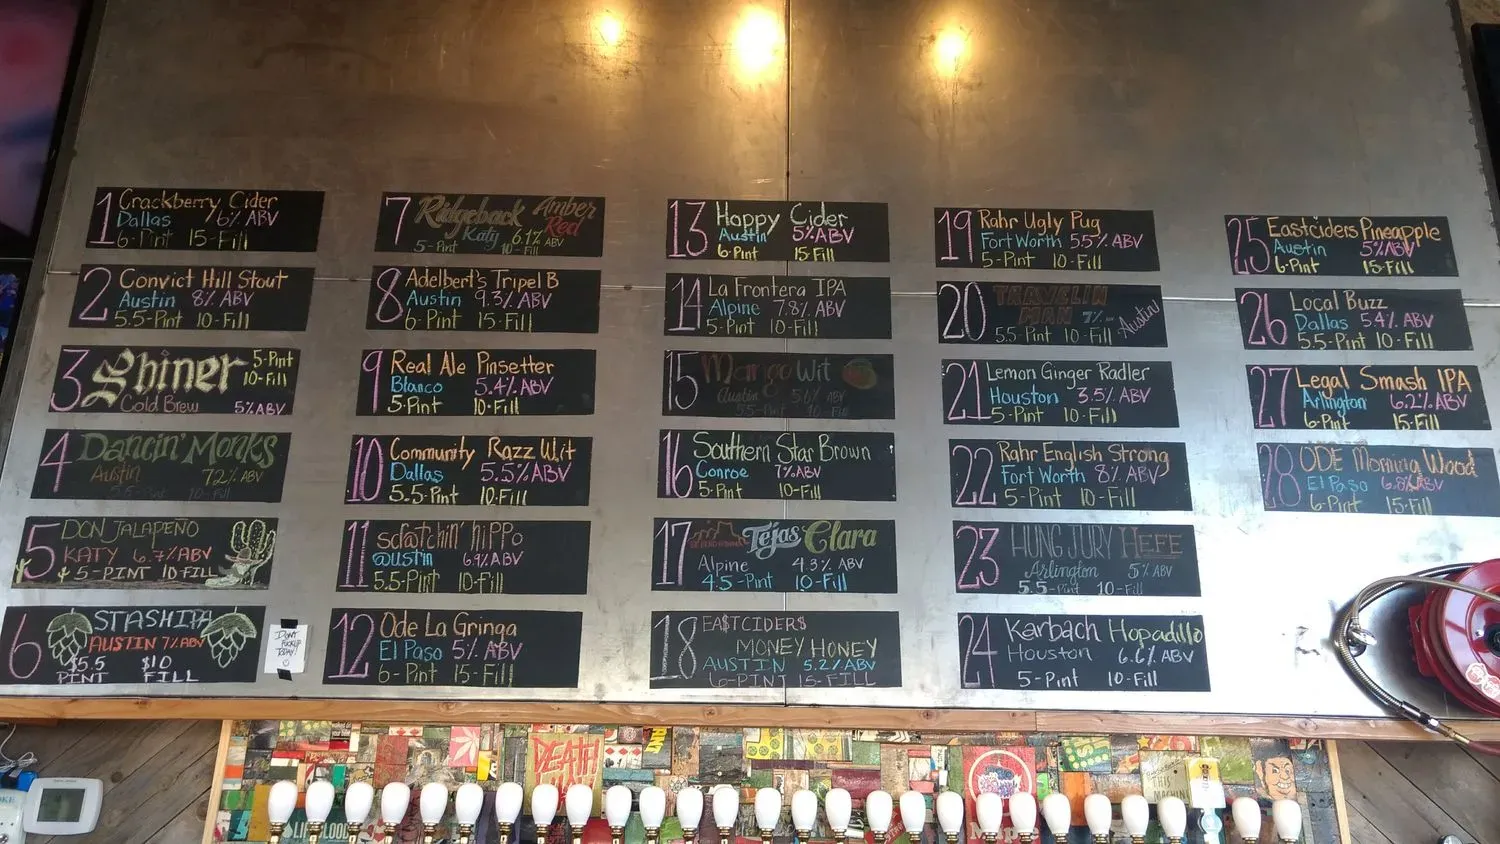 1 Crackberry Cider
Dallas 6% ABV
6-Pint 15-Fill
2 Convict Hill Stout
Austin 8% ABV
5.5-Pint 10-Fill
3 Shiner 5-Pint
10-Fill
Cold Brew 5% ABV
4 Dancin' Monks
Austin 7.2% ABV
5.5-Pint 10-Fill
5 DON JALAPEÑO
KATY 6.7% ABV
5-PINT 10 FILL
6 STASH IPA
AUSTIN 7% ABV
$5.5 $10
PINT FILL
DON'T
FUCK UP
TODAY!
7 Ridgeback Amber
Red
Katy 6.1% ABV
5-Pint 10-Fill
8 Adelbert's Tripel B
Austin 9.3% ABV
6-Pint 15-Fill
9 Real Ale Pinsetter
Blanco 5.4% ABV
5-Pint 10-Fill
10 Community Razz Wit
Dallas 5.5% ABV
5.5-Pint 10-Fill
11 scratchin' hippo
@ustin 6.9% ABV
5.5-Pint 10-Fill
12 Ode La Gringa
El Paso 5% ABV
6-Pint 15-Fill
13 Hoppy Cider
Austin 5% ABV
6-Pint 15-Fill
14 La Frontera IPA
Alpine 7.8% ABV
5-Pint 10-Fill
15 Mango Wit
Austin 5.6% ABV
5.5-Pint 10-Fill
16 Southern Star Brown
Conroe 7% ABV
5-Pint 10-Fill
17 Tejas Clara
Alpine 4.3% ABV
4.5-Pint 10-Fill
18 EA$TCIDER$
MONEY HONEY
AUSTIN 5.2% ABV
6-PINT 15-FILL
19 Rahr Ugly Pug
Fort Worth 5.5% ABV
5-Pint 10-Fill
20 TRAVELIN
MAN 7% Austin
5.5-Pint 10-Fill
21 Lemon Ginger Radler
Houston 3.5% ABV
5-Pint 10-Fill
22 Rahr English Strong
Fort Worth 8% ABV
5-Pint 10-Fill
23 HUNG JURY HEFE
Arlington 5% ABV
5.5-Pint 10-Fill
24 Karbach Hopadillo
Houston 6.6% ABV
5-Pint 10-Fill
25 Eastciders Pineapple
Austin 5% ABV
6-Pint 15-Fill
26 Local Buzz
Dallas 5.4% ABV
5.5-Pint 10-Fill
27 Legal Smash IPA
Arlington 6.2% ABV
6-Pint 15-Fill
28 ODE Morning Wood
El Paso 6.8% ABV
6-Pint 15-Fill
DEATH